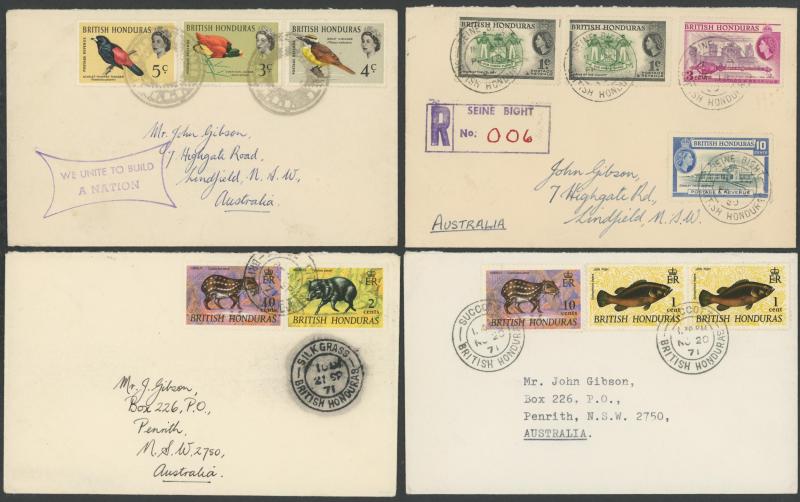 BRITISH HONDURAS
5c
BRITISH HONDURAS
3c
BRITISH HONDURAS
4c
WE UNITE TO BUILD
A NATION
Mr. John Gibson,
7 Highgate Road,
Lindfield, N.S.W.
Australia.
BRITISH HONDURAS
1c
POSTAGE & REVENUE
BRITISH HONDURAS
1c
POSTAGE & REVENUE
BRITISH HONDURAS
3 CENTS
SEINE BIGHT
BRITISH HONDURAS
R
SEINE BIGHT
No. 006
BRITISH HONDURAS
10
CENTS
POSTAGE & REVENUE
SEINE BIGHT
BRITISH HONDURAS
John Gibson,
7 Highgate Rd,
Lindfield, N.S.W.
AUSTRALIA
EIIR
10
cents
BRITISH HONDURAS
EIIR
2
cents
BRITISH HONDURAS
SILK GRASS
21 SP
71
BRITISH HONDURAS
Mr. J. Gibson,
Box 226, P.O.,
Penrith,
N.S.W. 2750,
Australia.
EIIR
10
cents
BRITISH HONDURAS
EIIR
1
cent
BRITISH HONDURAS
EIIR
1
cent
BRITISH HONDURAS
NO 20
71
BRITISH HONDURAS
NO 20
71
BRITISH HONDURAS
Mr. John Gibson,
Box 226, P.O.,
Penrith, N.S.W. 2750,
AUSTRALIA.